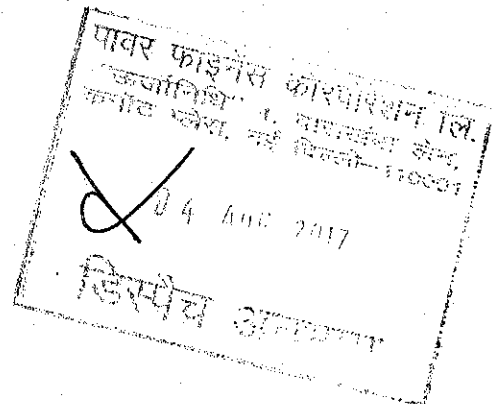 पावर फाइनेंस कॉरपोरेशन लि.
"ऊर्जानिधि" 1, बाराखंबा लेन,
कनॉट प्लेस, नई दिल्ली-110001
04 AUG 2017
डिस्पैच अनुभाग